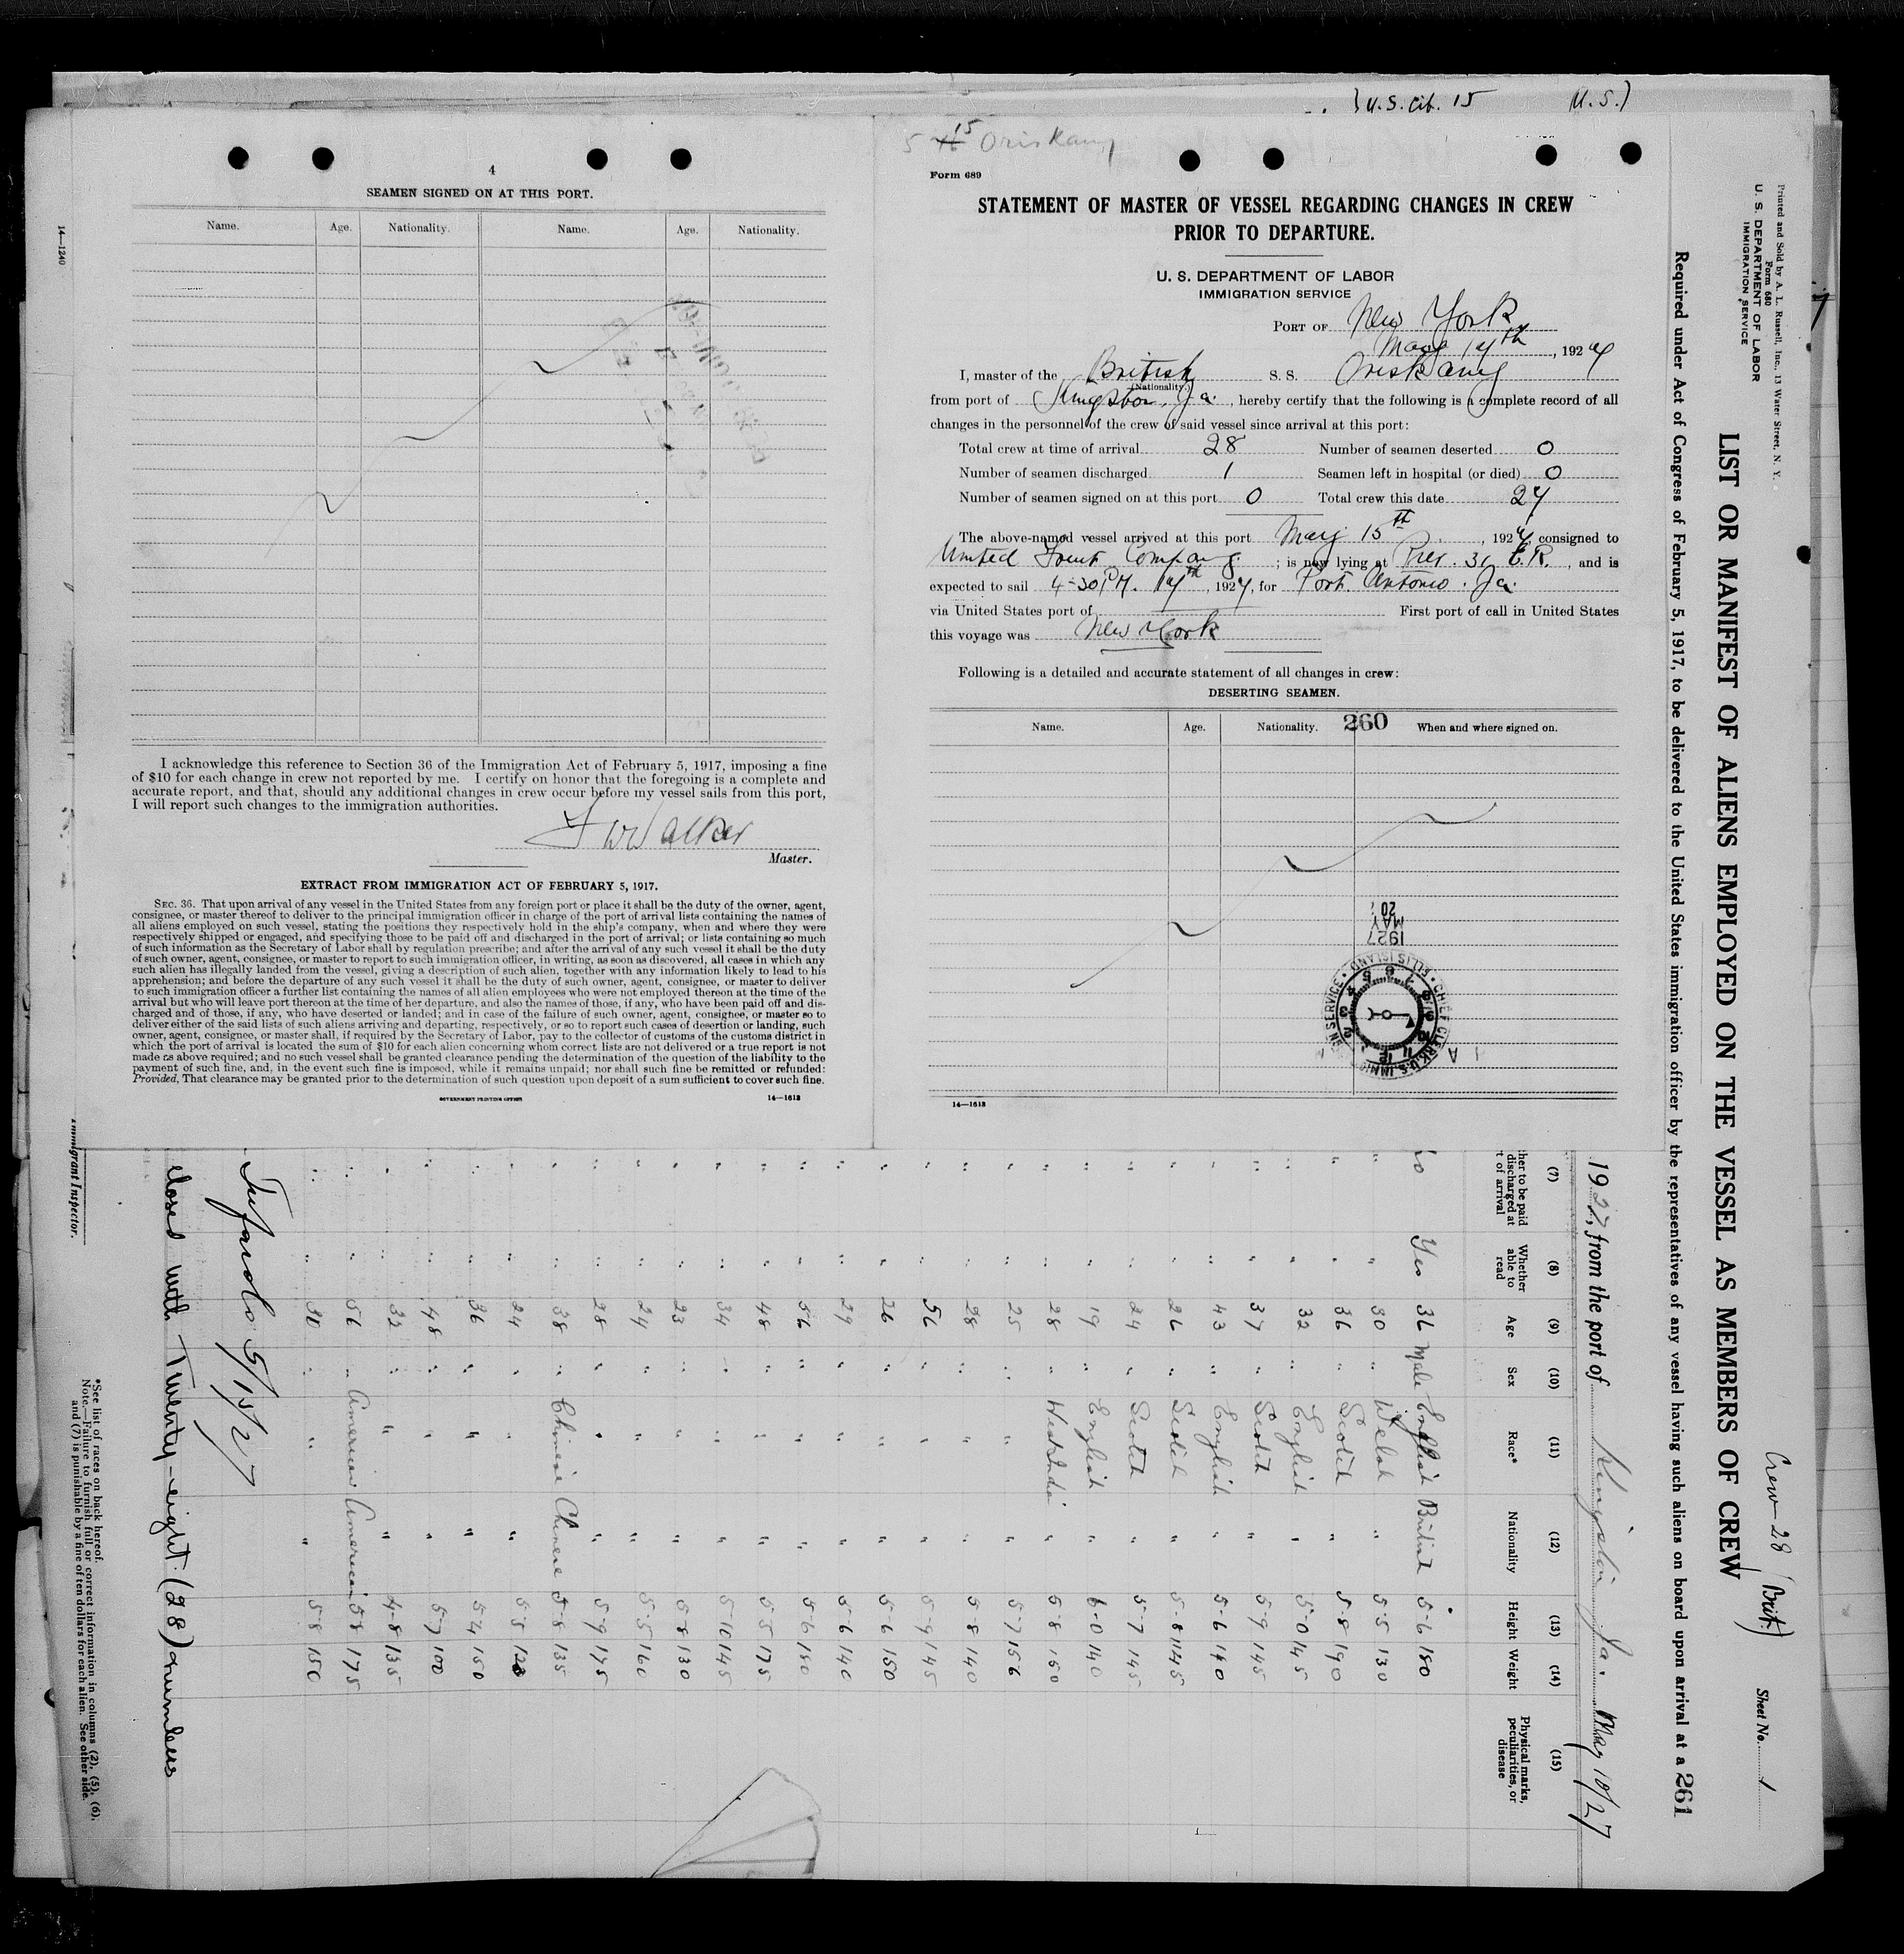 } U.S. cit. 15 U.S.)
4
SEAMEN SIGNED ON AT THIS PORT.
Name. Age. Nationality. Name. Age. Nationality.
I acknowledge this reference to Section 36 of the Immigration Act of February 5, 1917, imposing a fine
of $10 for each change in crew not reported by me. I certify on honor that the foregoing is a complete and
accurate report, and that, should any additional changes in crew occur before my vessel sails from this port,
I will report such changes to the immigration authorities.
Walker
Master.
EXTRACT FROM IMMIGRATION ACT OF FEBRUARY 5, 1917.
SEC. 36. That upon arrival of any vessel in the United States from any foreign port or place it shall be the duty of the owner, agent,
consignee, or master thereof to deliver to the principal immigration officer in charge of the port of arrival lists containing the names of
all aliens employed on such vessel, stating the positions they respectively hold in the ship's company, when and where they were
respectively shipped or engaged, and specifying those to be paid off and discharged in the port of arrival; or lists containing so much
of such information as the Secretary of Labor shall by regulation prescribe; and after the arrival of any such vessel it shall be the duty
of such owner, agent, consignee, or master to report to such immigration officer, in writing, as soon as discovered, all cases in which any
such alien has illegally landed from the vessel, giving a description of such alien, together with any information likely to lead to his
apprehension; and before the departure of any such vessel it shall be the duty of such owner, agent, consignee, or master to deliver
to such immigration officer a further list containing the names of all alien employees who were not employed thereon at the time of the
arrival but who will leave port thereon at the time of her departure, and also the names of those, if any, who have been paid off and dis-
charged and of those, if any, who have deserted or landed; and in case of the failure of such owner, agent, consignee, or master so to
deliver either of the said lists of such aliens arriving and departing, respectively, or so to report such cases of desertion or landing, such
owner, agent, consignee, or master shall, if required by the Secretary of Labor, pay to the collector of customs of the customs district in
which the port of arrival is located the sum of $10 for each alien concerning whom correct lists are not delivered or a true report is not
made as above required; and no such vessel shall be granted clearance pending the determination of the question of the liability to the
payment of such fine, and, in the event such fine is imposed, while it remains unpaid; nor shall such fine be remitted or refunded:
Provided, That clearance may be granted prior to the determination of such question upon deposit of a sum sufficient to cover such fine.
GOVERNMENT PRINTING OFFICE 14—1613
14—1240
5 15 Oriskany
Form 689
STATEMENT OF MASTER OF VESSEL REGARDING CHANGES IN CREW
PRIOR TO DEPARTURE.
U. S. DEPARTMENT OF LABOR
IMMIGRATION SERVICE
PORT OF New York
May 17th, 1927
I, master of the British S. S. Oriskany
(Nationality.)
from port of Kingston, Ja., hereby certify that the following is a complete record of all
changes in the personnel of the crew of said vessel since arrival at this port:
Total crew at time of arrival 28 Number of seamen deserted 0
Number of seamen discharged 1 Seamen left in hospital (or died) 0
Number of seamen signed on at this port 0 Total crew this date 27
The above-named vessel arrived at this port May 15th, 1927, consigned to
United Fruit Company; is now lying at Pier. 31 E.R., and is
expected to sail 4-30 PM. 17th, 1927, for Port. Antonio. Ja.
via United States port of First port of call in United States
this voyage was New York
Following is a detailed and accurate statement of all changes in crew:
DESERTING SEAMEN.
Name. Age. Nationality. 260 When and where signed on.
1927
MAY
20
CHIEF CLERK, U.S. IMMIGRATION SERVICE • ELLIS ISLAND •
14—1613
Printed and Sold by A. L. Russell, Inc., 13 Water Street, N. Y.
Form 680
U. S. DEPARTMENT OF LABOR
IMMIGRATION SERVICE
Crew 28 (Brit.)
Sheet No. 1
LIST OR MANIFEST OF ALIENS EMPLOYED ON THE VESSEL AS MEMBERS OF CREW
Required under Act of Congress of February 5, 1917, to be delivered to the United States immigration officer by the representatives of any vessel having such aliens on board upon arrival at a 261
1927, from the port of Kingston Ja. May 10/27
(7) (8) (9) (10) (11) (12) (13) (14) (15)
her to be paid discharged at t of arrival Whether able to read Age Sex Race* Nationality Height Weight Physical marks, peculiarities, or disease
no Yes 36 Male English British 5-6 180
" " 30 " Welsh " 5-5 130
" " 36 " Scotch " 5-8 190
" " 32 " English " 5-0 145
" " 37 " Scotch " 5-9 145
" " 43 " English " 5-6 140
" " 26 " Scotch " 5-8 145
" " 24 " Scotch " 5-7 145
" " 19 " English " 6-0 140
" " 28 " West India " 5-8 150
" " 25 " " " 5-7 156
" " 28 " " " 5-8 140
" " 56 " " " 5-9 145
" " 26 " " " 5-6 150
" " 29 " " " 5-6 140
" " 56 " " " 5-6 180
" " 48 " " " 5-5 175
" " 34 " " " 5-10 145
" " 23 " " " 5-8 130
" " 24 " " " 5-5 160
" " 28 " " " 5-9 175
" " 38 " Chinese Chinese 5-8 135
" " 24 " " " 5-5 123
" " 36 " " " 5-4 150
" " 48 " " " 5-7 100
" " 32 " " " 4-8 135
" " 56 " American American 5-8 175
" " 30 " " " 5-8 150
5/15/27
closed with Twenty-eight (28) numbers
Immigrant Inspector.
*See list of races on back hereof.
Note.—Failure to furnish full or correct information in columns (2), (5), (6),
and (7) is punishable by a fine of ten dollars for each alien. See other side.